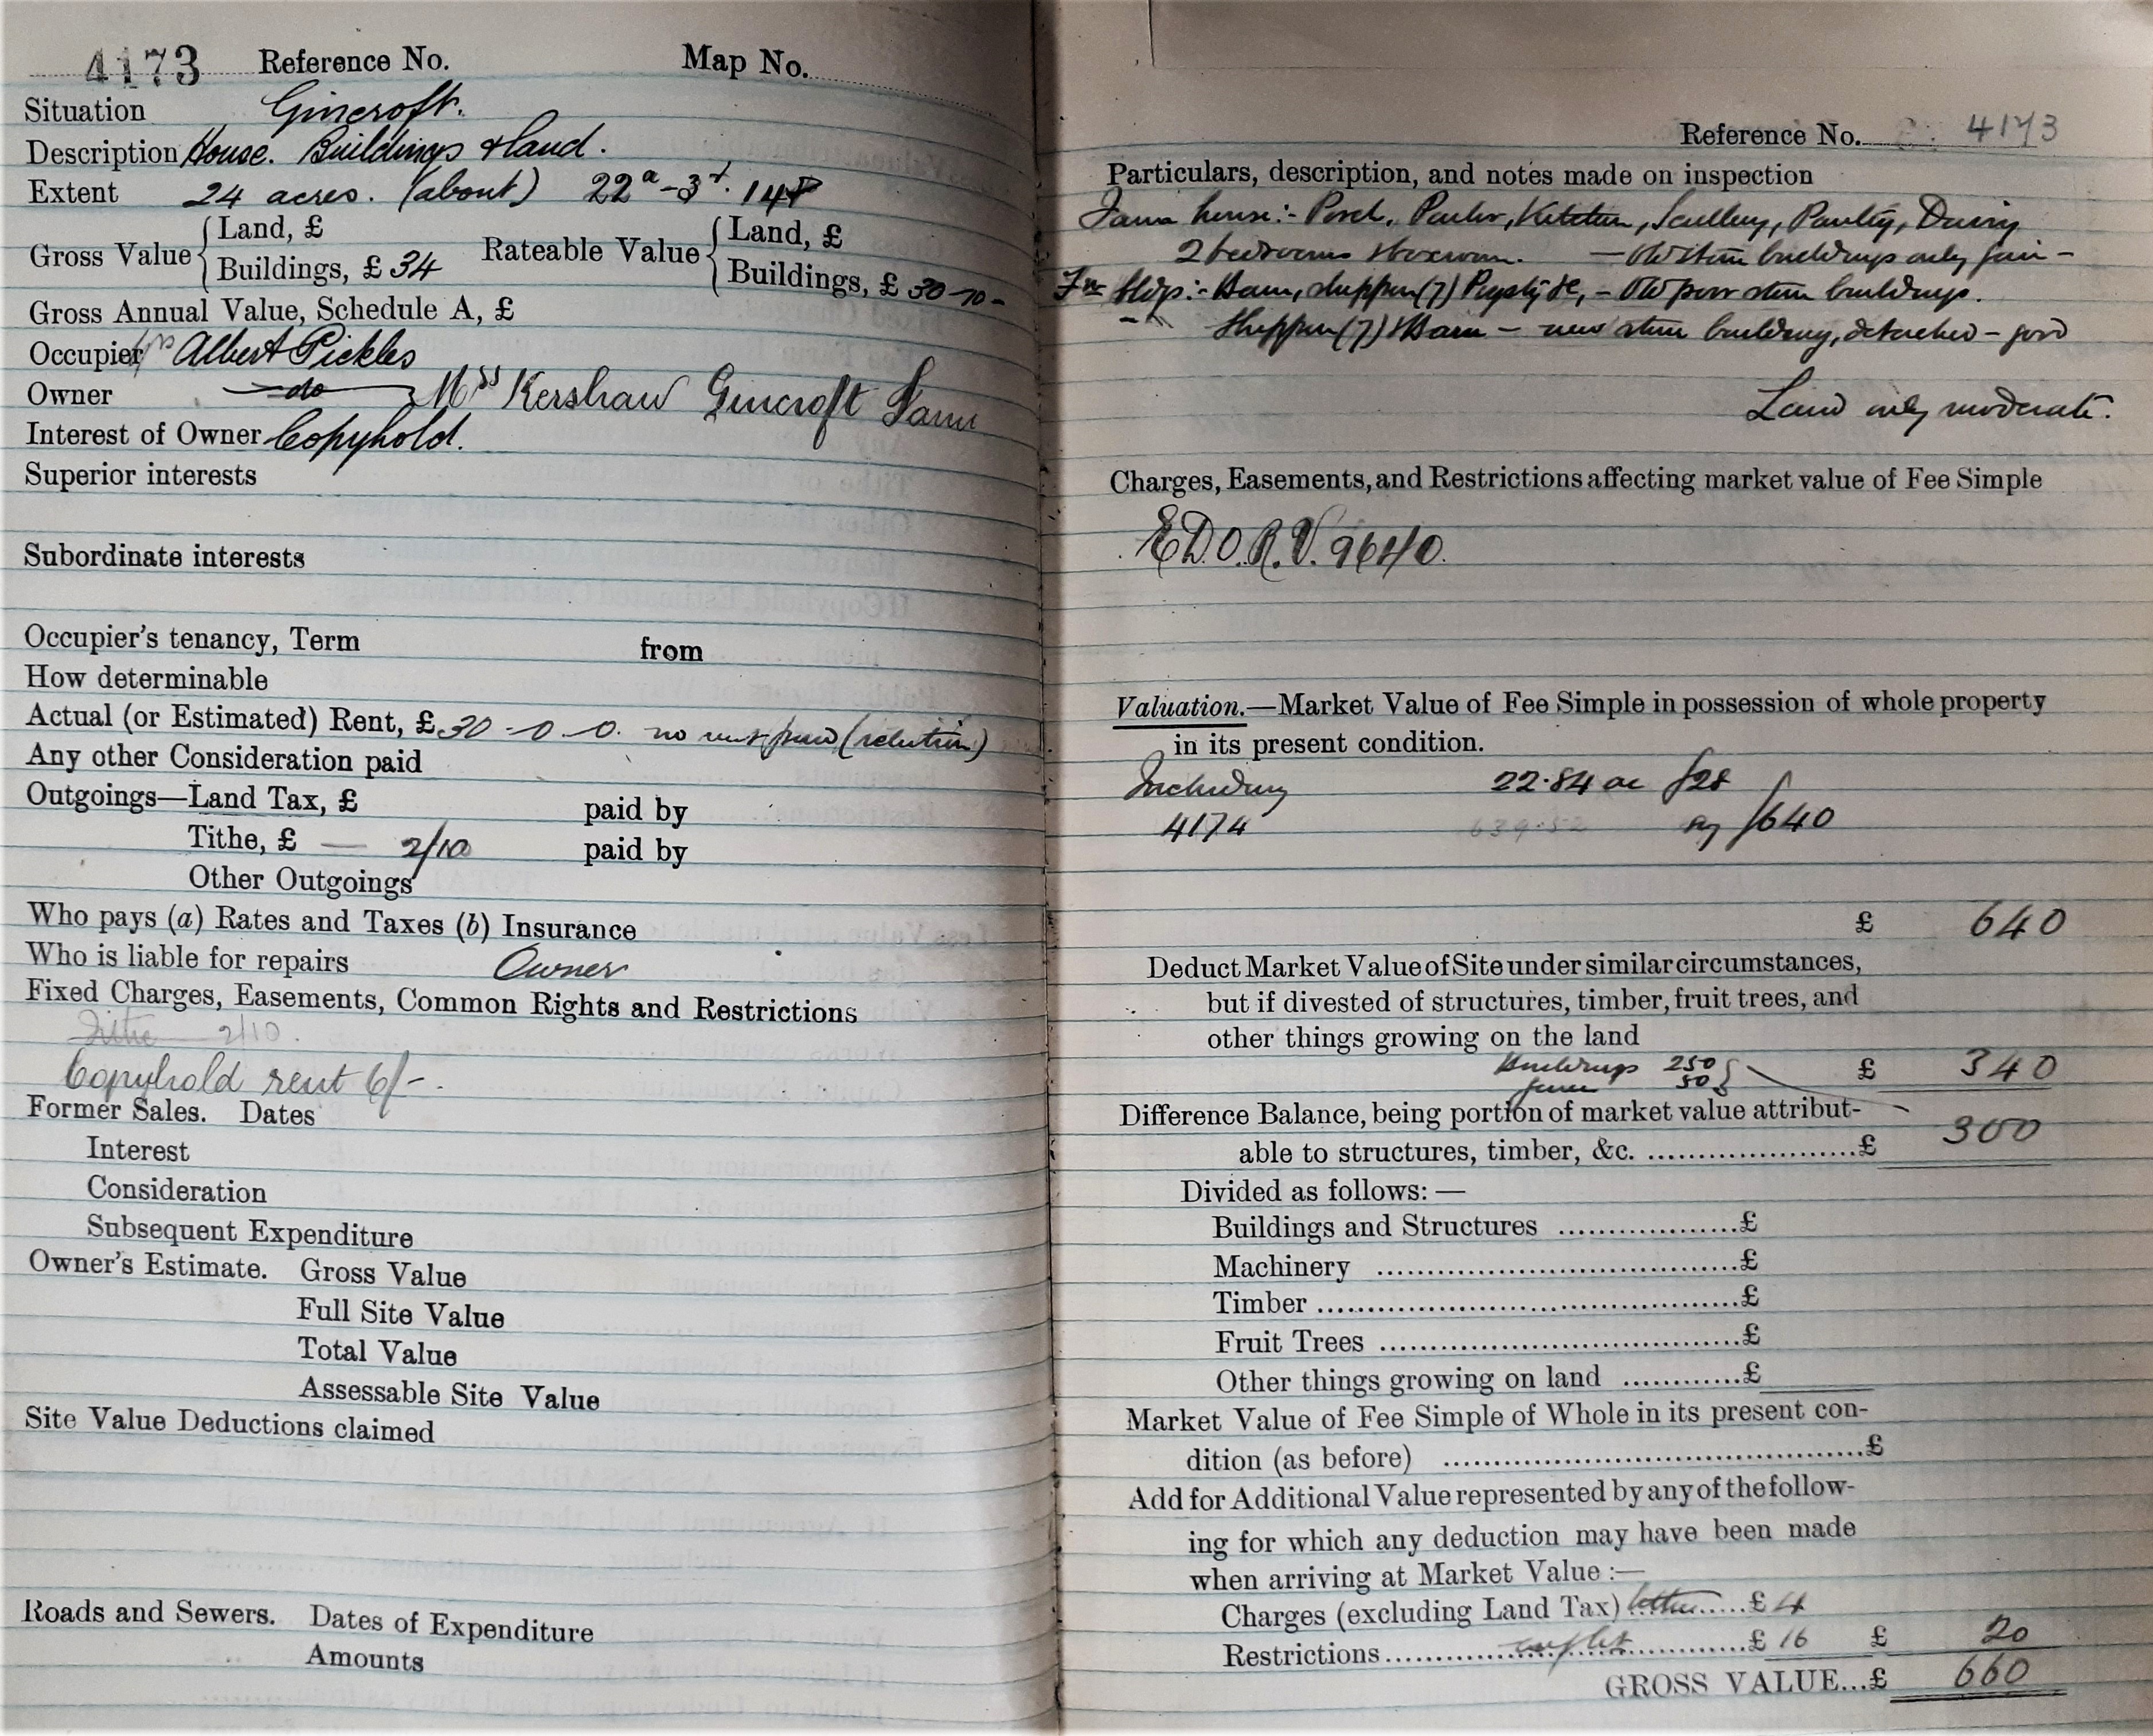 4173 Reference No. Map No.
Situation Gincroft.
Description House. Buildings & land.
Extent 24 acres. (about) 22a - 3r. 14P
Gross Value { Land, £ Rateable Value { Land, £
Buildings, £ 34 Buildings, £ 30-10-
Gross Annual Value, Schedule A, £
Occupier Albert Pickles
Owner do Mrs Kershaw Gincroft Farm
Interest of Owner Copyhold.
Superior interests
Subordinate interests
Occupier's tenancy, Term from
How determinable
Actual (or Estimated) Rent, £ 30-0-0. no rent paid (relation)
Any other Consideration paid
Outgoings—Land Tax, £ paid by
Tithe, £ — 2/10 paid by
Other Outgoings
Who pays (a) Rates and Taxes (b) Insurance
Who is liable for repairs Owner
Fixed Charges, Easements, Common Rights and Restrictions
Tithe 2/10.
Copyhold rent 6/-.
Former Sales. Dates
Interest
Consideration
Subsequent Expenditure
Owner's Estimate. Gross Value
Full Site Value
Total Value
Assessable Site Value
Site Value Deductions claimed
Roads and Sewers. Dates of Expenditure
Amounts
Reference No. 4173
Particulars, description, and notes made on inspection
Farm house:- Porch, Parlor, Kitchen, Scullery, Pantry, Dairy
2 bedrooms & boxroom. — Old stone buildings only fair -
Fm Bldgs:- Barn, shippon (7) Pigsty &c, - Old poor stone buildings.
Shippon (7) & Barn - new stone building, detached - good
Land only moderate.
Charges, Easements, and Restrictions affecting market value of Fee Simple
E.D.O.R.V. 9640.
Valuation.—Market Value of Fee Simple in possession of whole property
in its present condition.
Including 22.84 ac £28
4174 639.52 say £640
£ 640
Deduct Market Value of Site under similar circumstances,
but if divested of structures, timber, fruit trees, and
other things growing on the land
Buildings 250 £ 340
50
Difference Balance, being portion of market value attribut-
able to structures, timber, &c. £ 300
Divided as follows:—
Buildings and Structures £
Machinery £
Timber £
Fruit Trees £
Other things growing on land £
Market Value of Fee Simple of Whole in its present con-
dition (as before) £
Add for Additional Value represented by any of the follow-
ing for which any deduction may have been made
when arriving at Market Value:—
Charges (excluding Land Tax) £ 4
Restrictions £ 16 £ 20
GROSS VALUE...£ 660